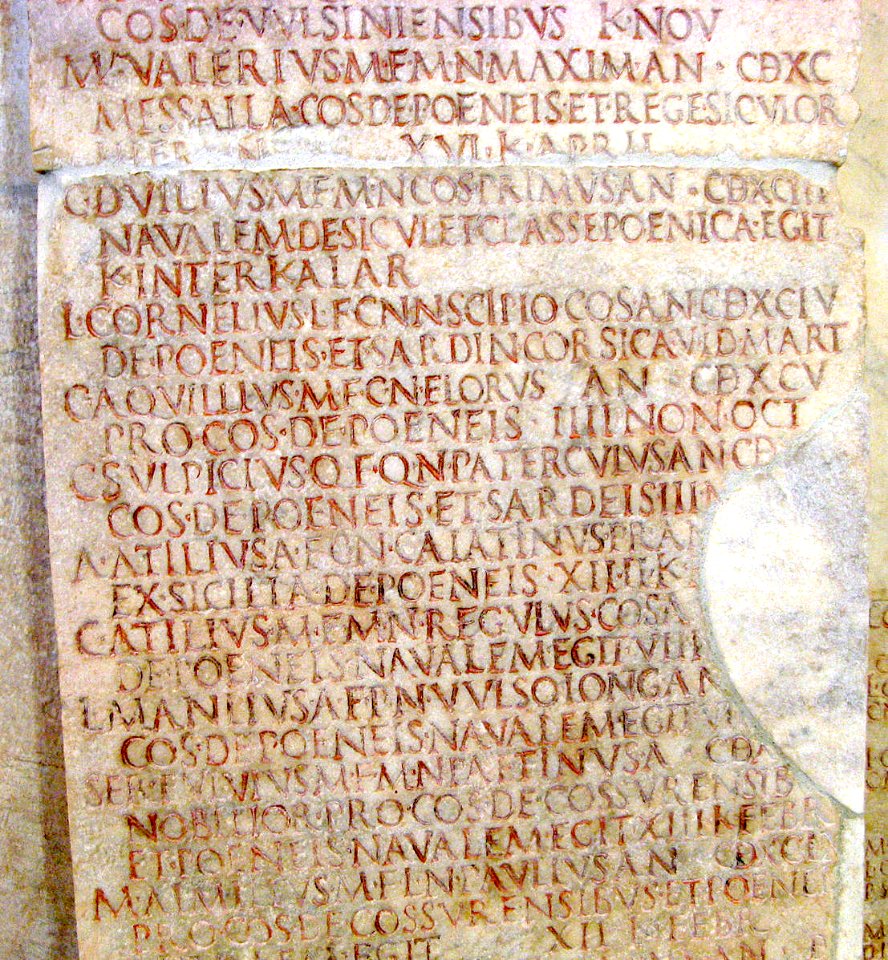 COS·DE·VVLSINIENSIBVS K·NOV
M·VALERIVS·M·F·M·N·MAXIM·AN · CDXC
MESSALLA·COS·DE·POENEIS·ET·REGE·SICVLOR
XVI·K·APRIL
C·DVILIVS·M·F·M·N·COS·PRIMVS·AN · CDXCIII
NAVALEM·DE·SICVL·ET·CLASSE·POENICA·EGIT
K·INTERKALAR
L·CORNELIVS·L·F·CN·N·SCIPIO COS·AN·CDXCIV
DE·POENEIS·ET·SARDIN·CORSICA·V·ID·MART
C·AQVILLIVS·M·F·C·N·FLORVS AN CDXCV
PRO·COS·DE·POENEIS IIII·NON·OCT
C·SVLPICIVS·Q·F·Q·N·PATERCVLVS·AN·CD
COS·DE·POENEIS·ET·SARDEIS·III·N
A·ATILIVS·A·F·C·N·CAIATINVS·PR·AN
EX·SICILIA·DE·POENEIS·XIIII·K
C·ATILIVS·M·F·M·N·REGVLVS·COS·A
DE·POENEIS·NAVALEM·EGIT·VIII
L·MANLIVS·A·F·P·N·VVLSO·LONG·AN
COS·DE·POENEIS·NAVALEM·EGIT
SER·FVLVIVS·M·F·M·N·PAETINVS·A · CD
NOBILIOR·PRO·COS·DE·COSSVRENSIB
ET·POENEIS·NAVALEM·EGIT·XIII·K·FEBR
M·AIMILIVS·M·F·L·N·PAVLLVS·AN CDXCIX
PRO·COS·DE·COSSVRENSIBVS·ET·POENEIS
EGIT XII K·FEBR